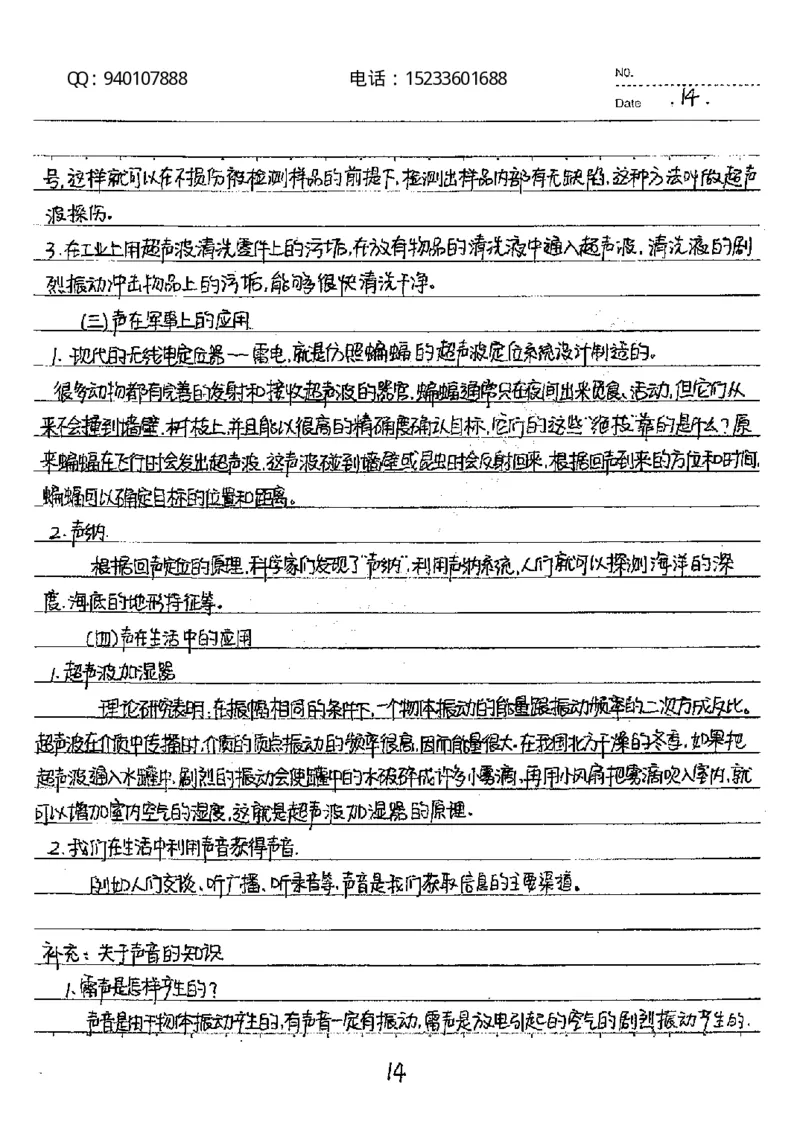 QQ：940107888
电话：15233601688
NO.
Date .14.
号,这样就可以在不损伤被检测样品的前提下,检测出样品内部有无缺陷,这种方法叫做超声
波探伤。
3.在工业上用超声波清洗零件上的污垢,在放有物品的清洗液中通入超声波,清洗液的剧
烈振动冲击物品上的污垢,能够很快清洗干净。
(三)声在军事上的应用
1.现代的无线电定位器——雷电,就是仿照蝙蝠的超声波定位系统设计制造的。
很多动物都有完善的发射和接收超声波的器官,蝙蝠通常只在夜间出来觅食、活动,但它们从
来不会撞到墙壁、树枝上,并且能以很高的精确度确认目标,它们的这些"绝技"靠的是什么?原
来蝙蝠在飞行时会发出超声波,这声波碰到墙壁或昆虫时会反射回来,根据回声到来的方位和时间,
蝙蝠可以确定目标的位置和距离。
2.声纳.
根据回声定位的原理,科学家们发现了"声纳",利用声纳系统,人们就可以探测海洋的深
度.海底的地形特征等。
(四)声在生活中的应用
1.超声波加湿器
理论研究表明:在振幅相同的条件下,一个物体振动的能量跟振动频率的二次方成反比。
超声波在介质中传播时,介质的质点振动的频率很高,因而能量很大.在我国北方干燥的冬季,如果把
超声波通入水罐中,剧烈的振动会使罐中的水破碎成许多小雾滴,再用小风扇把雾滴吹入室内,就
可以增加室内空气的湿度,这就是超声波加湿器的原理.
2.我们在生活中利用声音获得声音.
例如人们交谈、听广播、听录音等,声音是我们获取信息的主要渠道。
补充：关于声音的知识
1.雷声是怎样产生的?
声音是由于物体振动产生的,有声音一定有振动,雷声是放电引起的空气的剧烈振动产生的.
14